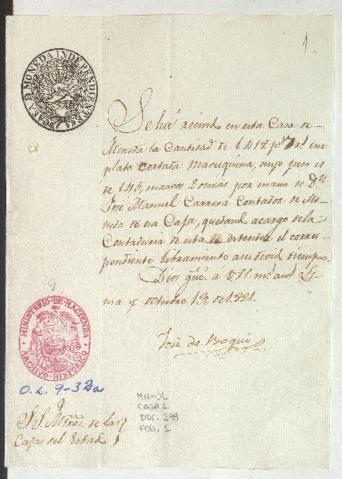 1.
CASA D MONEDA INDEPENDIENTE
Se há recivido en esta Casa de
Moneda la Cantidad de 1412 p.s 7 r.l en
plata cortada Macuquina, cuyo peso es
de 146, marcos 2 onzas por mano de D.n
Jose Manuel Carrera Contador de Mo-
neda de esa Caja, quedand acargo de la
Contaduria de esta el corres-
pondiente libramiento
Dios gũe. a VSS. m.s an.s Li-
ma y octubre 13, de 1821.
Josè de Boqui
MINISTERIO DE HACIENDA
ARCHIVO HISTORICO
O.L. 9-32a
MH-OL
CAJA 1
DOC. 299
FOL. 1
S.S. Mtros. de las
Cajas del Estad